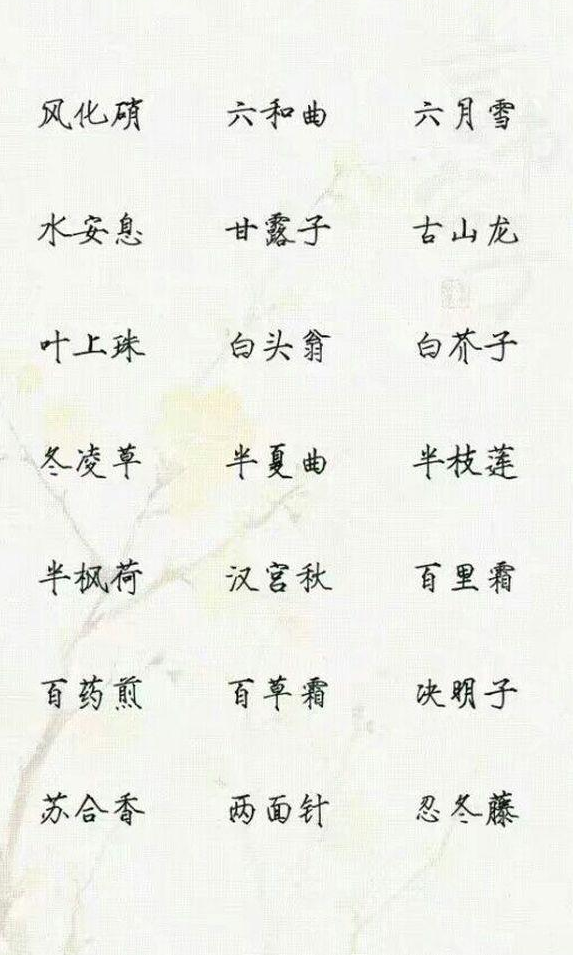 风化硝 六和曲 六月雪
水安息 甘露子 古山龙
叶上珠 白头翁 白芥子
冬凌草 半夏曲 半枝莲
半枫荷 汉宫秋 百里霜
百药煎 百草霜 决明子
苏合香 两面针 忍冬藤